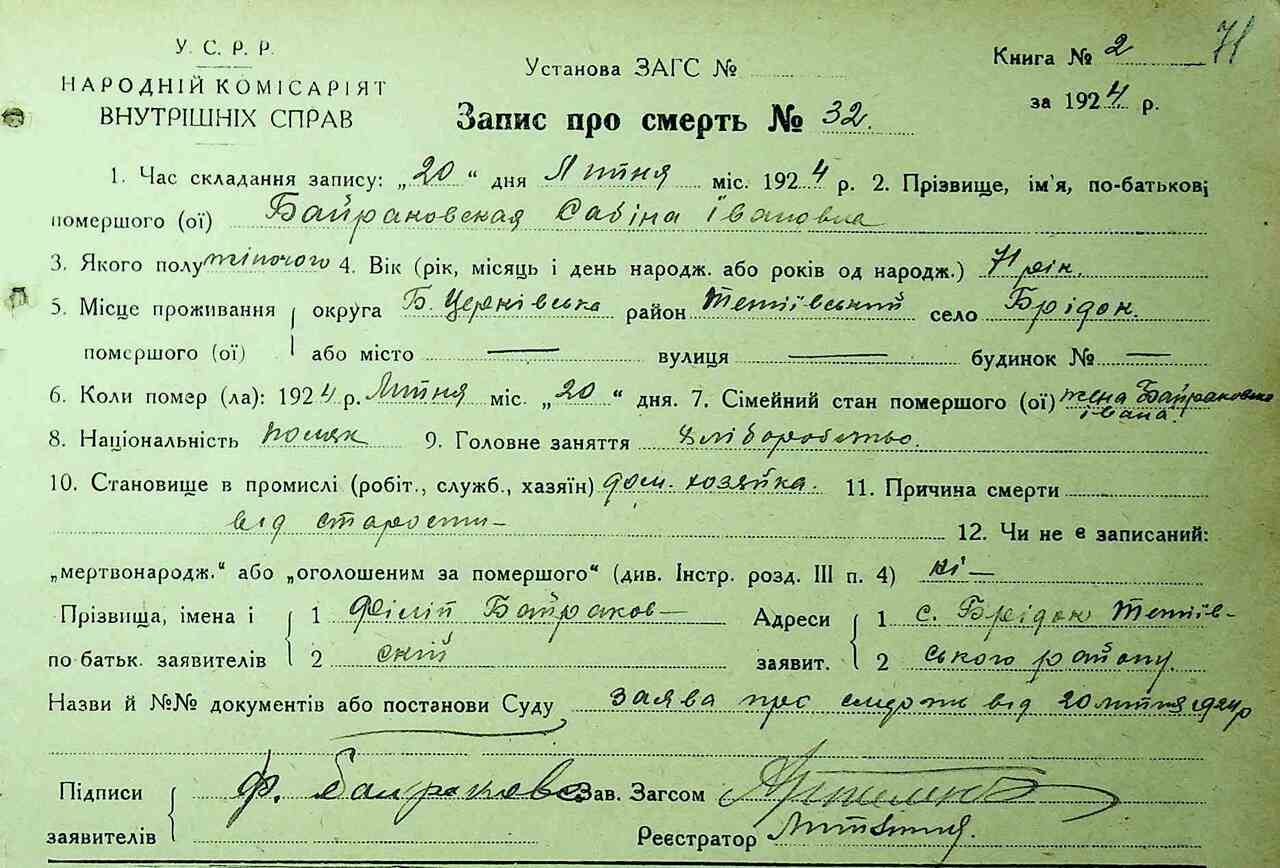 71
У. С. Р. Р.
НАРОДНІЙ КОМІСАРІЯТ
ВНУТРІШНІХ СПРАВ
Установа ЗАГС №
Книга № 2
за 1924 р.
Запис про смерть № 32.
1. Час складання запису: „20“ дня Лютня міс. 1924 р. 2. Прізвище, ім'я, по-батькові
помершого (ої) Байраковская Сабіна Івановна
3. Якого полу жіночого 4. Вік (рік, місяць і день народж. або років од народж.) 71 рік.
5. Місце проживання округа Б. Церківська район Тетіївський село Брідок.
помершого (ої) або місто — вулиця — будинок № —
6. Коли помер (ла): 1924 р. Лютня міс. „20“ дня. 7. Сімейний стан помершого (ої) жена Байраковско
івана.
8. Національність поляк 9. Головне заняття хліборобство.
10. Становище в промислі (робіт., служб., хазяїн) дом. хозяйка. 11. Причина смерти
від старости —
12. Чи не є записаний:
„мертвонародж.“ або „оголошеним за помершого“ (див. Інстр. розд. III п. 4) ні —
Прізвища, імена і 1 Філіп Байраков— Адреси 1 с. Брідок Тетіїв-
по батьк. заявителів 2 ский заявит. 2 ського району.
Назви й №№ документів або постанови Суду заява про від 20 лютня 1924 р
Підписи Ф. Байраковс Зав. Загсом
заявителів Реєстратор